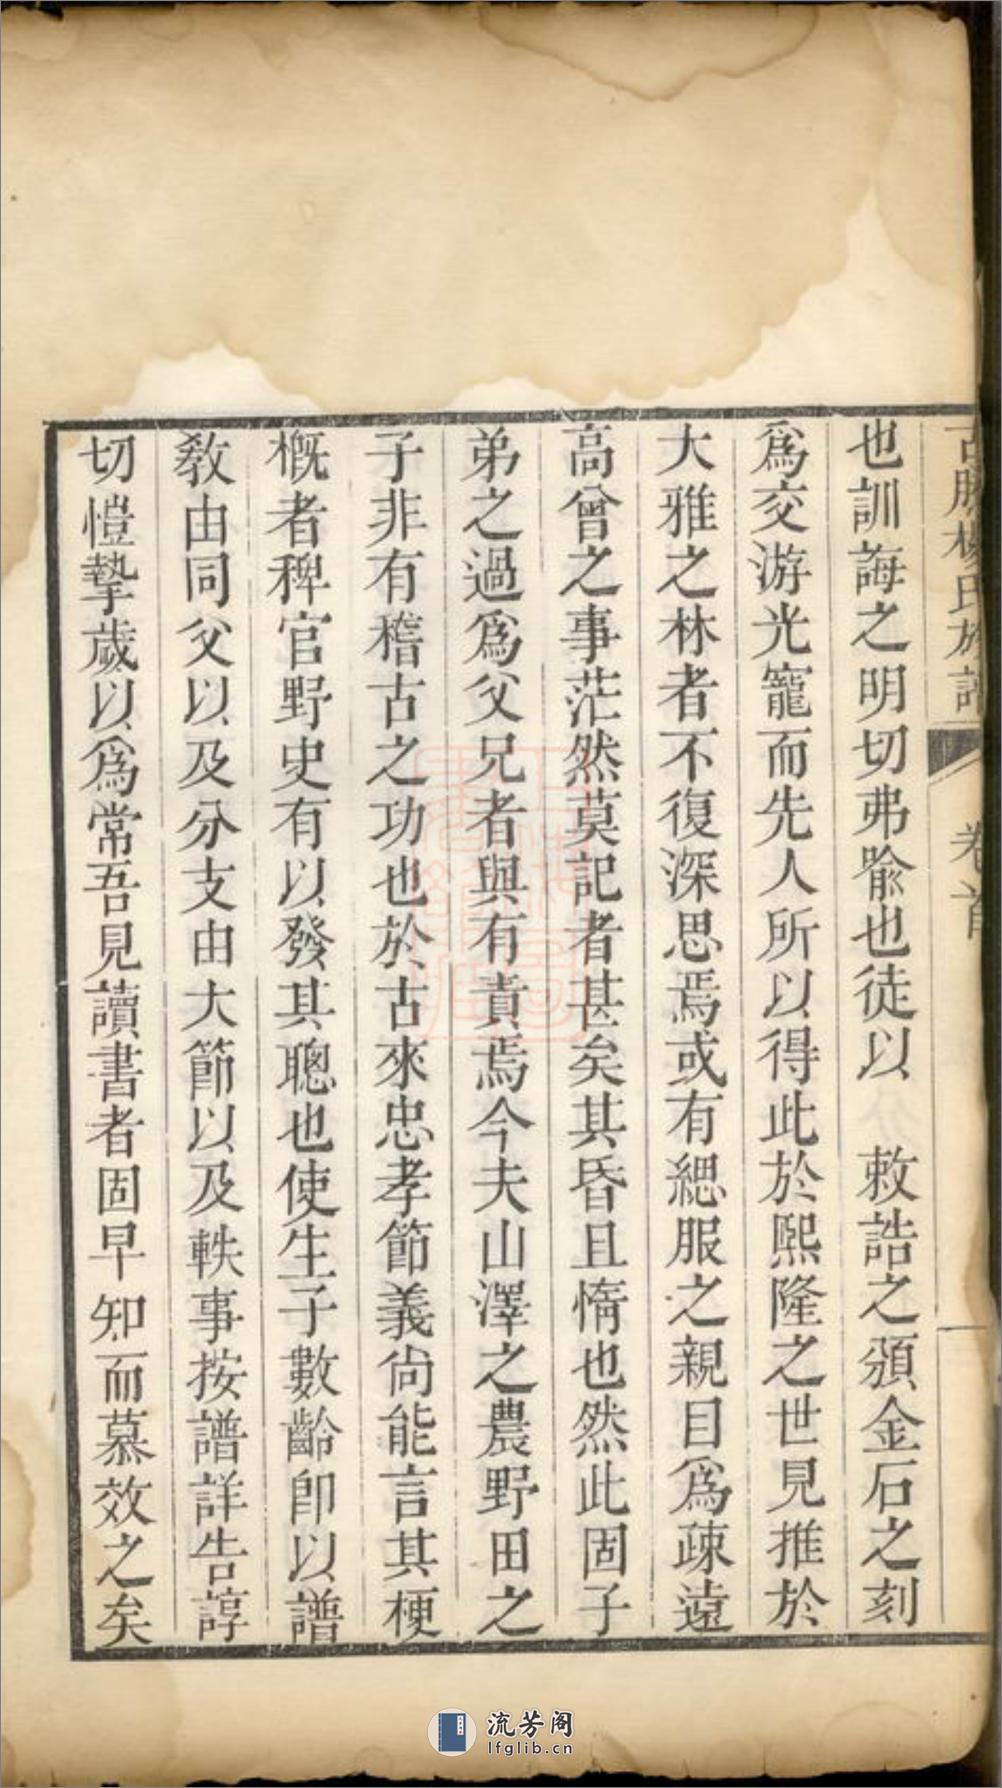 楊氏族譜 卷首 一
也訓誨之明切弗喩也徒以 敕誥之頒金石之刻
爲交游光寵而先人所以得此於熙隆之世見推於
大雅之林者不復深思焉或有緦服之親目爲疎遠
高曾之事茫然莫記者甚矣其昏且惰也然此固子
弟之過爲父兄者與有責焉今夫山澤之農野田之
子非有稽古之功也於古來忠孝節義尙能言其梗
槪者稗官野史有以發其聰也使生子數齡卽以譜
敎由同父以及分支由大節以及軼事按譜詳告諄
切愷摯歲以爲常吾見讀書者固早知而慕效之矣
流芳阁
lfglib.cn